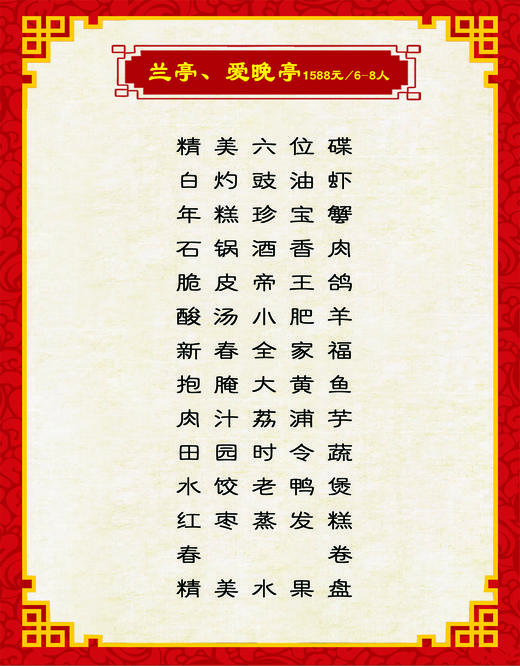 兰亭、爱晚亭1588元/6-8人
精美六位碟
白灼豉油虾
年糕珍宝蟹
石锅酒香肉
脆皮帝王鸽
酸汤小肥羊
新春全家福
抱腌大黄鱼
肉汁荔浦芋
田园时令蔬
水饺老鸭煲
红枣蒸发糕
春卷
精美水果盘